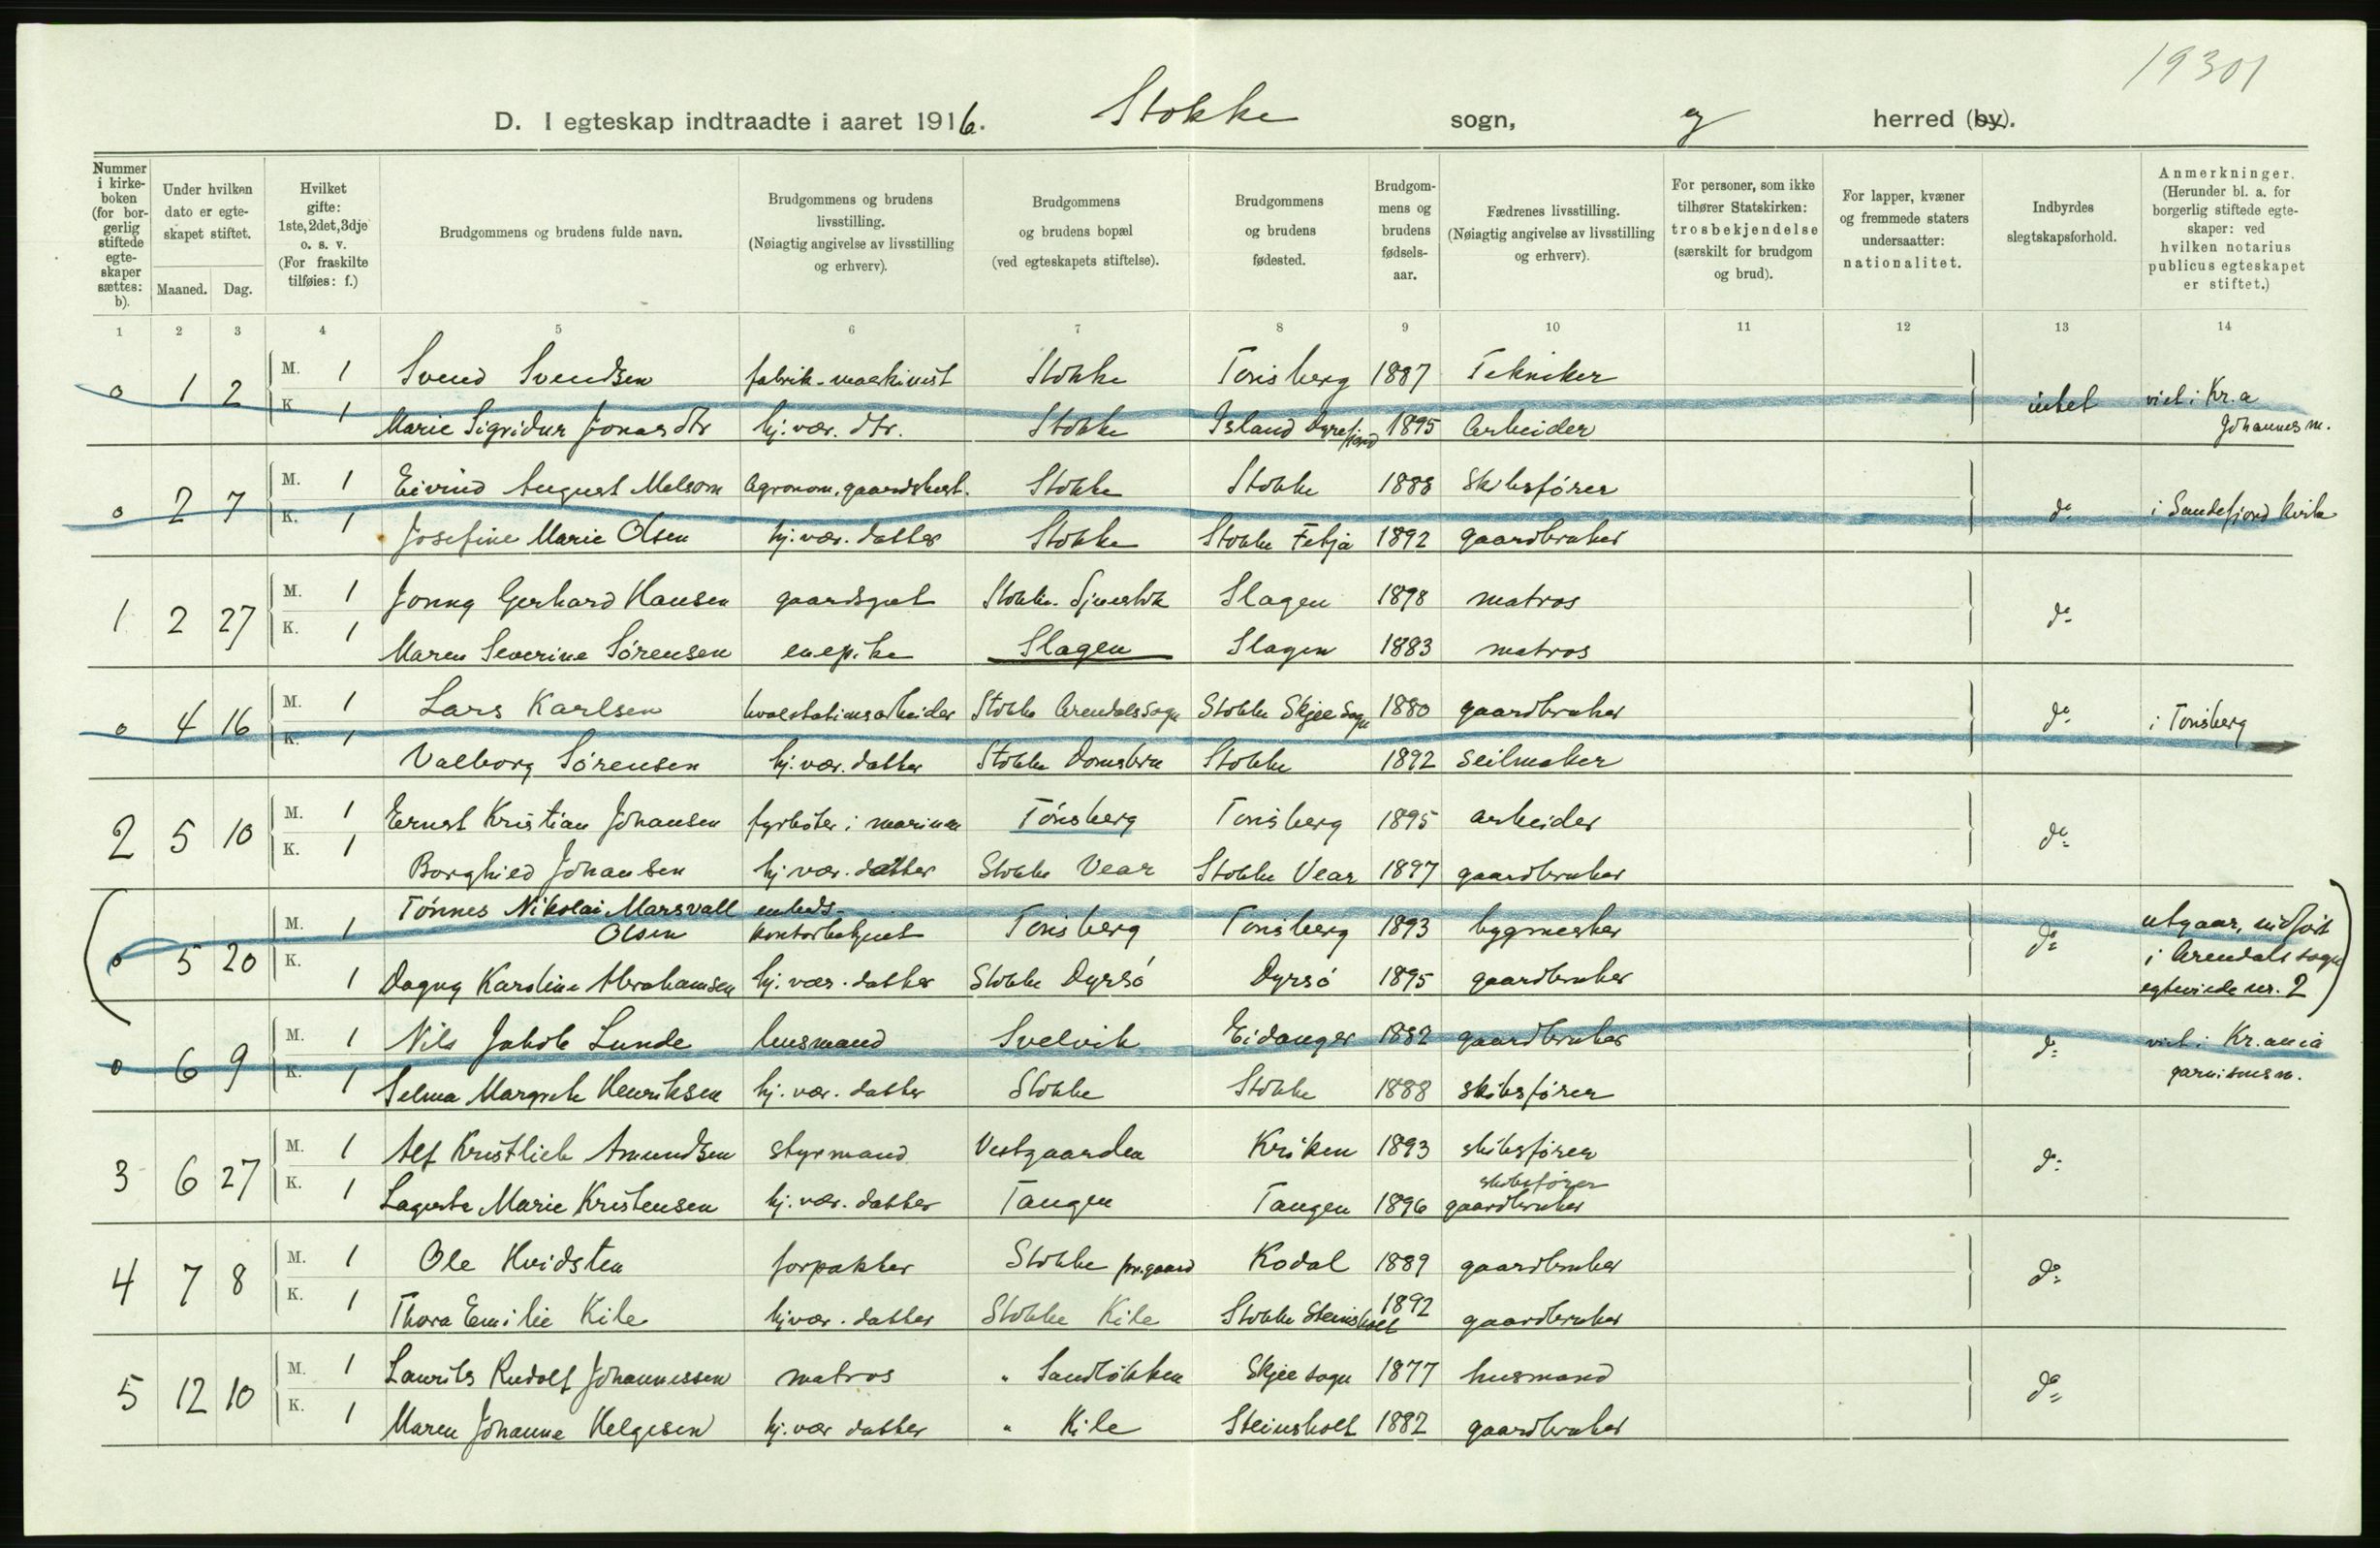 19301
D. I egteskap indtraadte i aaret 1916. Stokke sogn, og herred (by).
Nummer i kirke-boken (for bor-gerlig stiftede egte-skaper sættes: b).
Under hvilken dato er egte-skapet stiftet.
Maaned. Dag.
Hvilket gifte: 1ste, 2det, 3dje o. s. v. (For fraskilte tilføies: f.)
Brudgommens og brudens fulde navn.
Brudgommens og brudens livsstilling. (Nøiagtig angivelse av livsstilling og erhverv).
Brudgommens og brudens bopæl (ved egteskapets stiftelse).
Brudgommens og brudens fødested.
Brudgom-mens og brudens fødsels-aar.
Fædrenes livsstilling. (Nøiagtig angivelse av livsstilling og erhverv).
For personer, som ikke tilhører Statskirken: trosbekjendelse (særskilt for brudgom og brud).
For lapper, kvæner og fremmede staters undersaatter: nationalitet.
Indbyrdes slegtskapsforhold.
Anmerkninger. (Herunder bl. a. for borgerlig stiftede egte-skaper: ved hvilken notarius publicus egteskapet er stiftet.)
1 2 3 4 5 6 7 8 9 10 11 12 13 14
o 1 2 M. 1 Svend Svendsen fabrik-maskinist Stokke Tønsberg 1887 Tekniker intet viet i Kr.a
K. 1 Marie Sigridur Jonasdtr hj. vær. dtr. Stokke Island Dyrefjord 1895 Arbeider Johannes m.
o 2 7 M. 1 Eivind August Melsom Agronom, gaardsbest. Stokke Stokke 1888 Skibsfører do i Sandefjord kirke
K. 1 Josefine Marie Olsen hj. vær. datter Stokke Stokke Febja 1892 gaardbruker
1 2 27 M. 1 Jonny Gerhard Hansen gaardsgut Stokke. Slagen 1898 matros do
K. 1 Maren Severine Sørensen enepike Slagen Slagen 1883 matros
o 4 16 M. 1 Lars Karlsen hvalstationsarbeider Stokke Arendals Sogn Stokke Skjee Sogn 1880 gaardbruker do i Tønsberg
K. 1 Valborg Sørensen hj. vær. datter Stokke Stokke 1892 seilmaker
2 5 10 M. 1 Ernst Kristian Johansen fyrbøter i marinen Tønsberg Tønsberg 1895 arbeider do
K. 1 Borghild Johansen hj vær. datter Stokke Vear Stokke Vear 1897 gaardbruker
o 5 20 M. 1 Tønnes Nikolai Marsvall Olsen kontorbetjent Tønsberg Tønsberg 1893 bygmester do utgaar, indført
K. 1 Dagny Karoline Abrahamsen hj. vær. datter Stokke Dyrsø Dyrsø 1895 gaardbruker i Arendals sogn egteviede nr. 2
o 6 9 M. 1 Nils Jakob Lunde husmand Svelvik Eidanger 1882 gaardbruker do viet i Kr.ania
K. 1 Selma Margrete Henriksen hj. vær. datter Stokke Stokke 1888 skibsfører garnisonsm.
3 6 27 M. 1 Alf Kristlieb Amundsen styrmand Vestgaarden Kriken 1893 skibsfører do
skibsfører
K. 1 Lagerta Marie Kristensen hj. vær. datter Tangen Tangen 1896 gaardbruker
4 7 8 M. 1 Ole Hvidsten forpakter Stokke pr.gaard Kodal 1889 gaardbruker do
K. 1 Thora Emilie Kile hj vær. datter Stokke Kile Stokke Steinsholt 1892 gaardbruker
5 12 10 M. 1 Laurits Rudolf Johannessen matros " Sandløkken Skjee sogn 1877 husmand do
K. 1 Maren Johanne Helgesen hj. vær datter " Kile Steinsholt 1882 gaardbruker